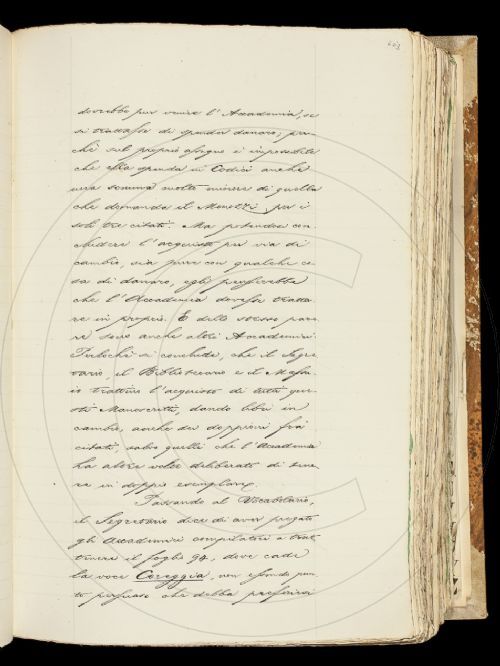 dovrebbe pur venire l'Accademia, se
si trattasse di spender danaro; per-
chè sul proprio assegno è impossibile
che ella spenda in Codici anche
una somma molto minore di quella
che domanda il Menozzi per i
soli tre citati. Ma potendosi con-
chiudere l'acquisto per via di
cambio, sia pure con qualche co-
sa di danaro, egli preferirebbe
che l'Accademia dovesse tratta-
re in proprio. E dello stesso pare-
re sono anche altri Accademici.
Perlochè si conchiude, che il Segre-
tario, il Bibliotecario e il Massa-
io trattino l'acquisto di tutti que-
sti Manoscritti, dando libri in
cambio, anche dei doppioni fra i
citati, salvo quelli che l'Accademia
ha altre volte deliberato di tene-
re in doppio esemplare.
Passando al Vocabolario,
il Segretario dice di aver pregato
gli Accademici compilatori a trat-
tenere il foglio 94, dove cade
la voce Coreggia, non essendo pun-
to persuaso che debba preferirsi